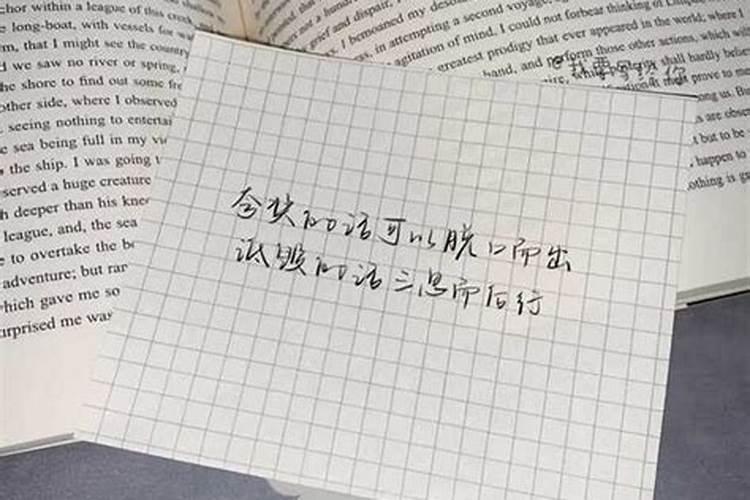 chor within a league of this creek
long-boat, with vessels for
that I might see the country
we saw no river or spring,
the shore to find out some
other side, where I observed
seeing nothing to
sea being full in my
the ship. I was going
served a huge creature
deeper than his
league, and, the sea
to overtake the
adventure; but
which gave me so
urprised me was
grief and dispair,
I bemoaned my
in attempting a second voyage,
agitation of mind, I could not forbear thinking of
greatest prodigy that ever appeared in the world; where I
hand, and perform those other actions, which
shall hardly
prove to
among us. But
are obser
but to be
happen to
othing is
@我要写给你
夸奖的话可以脱口而出
诋毁的话三思而后行